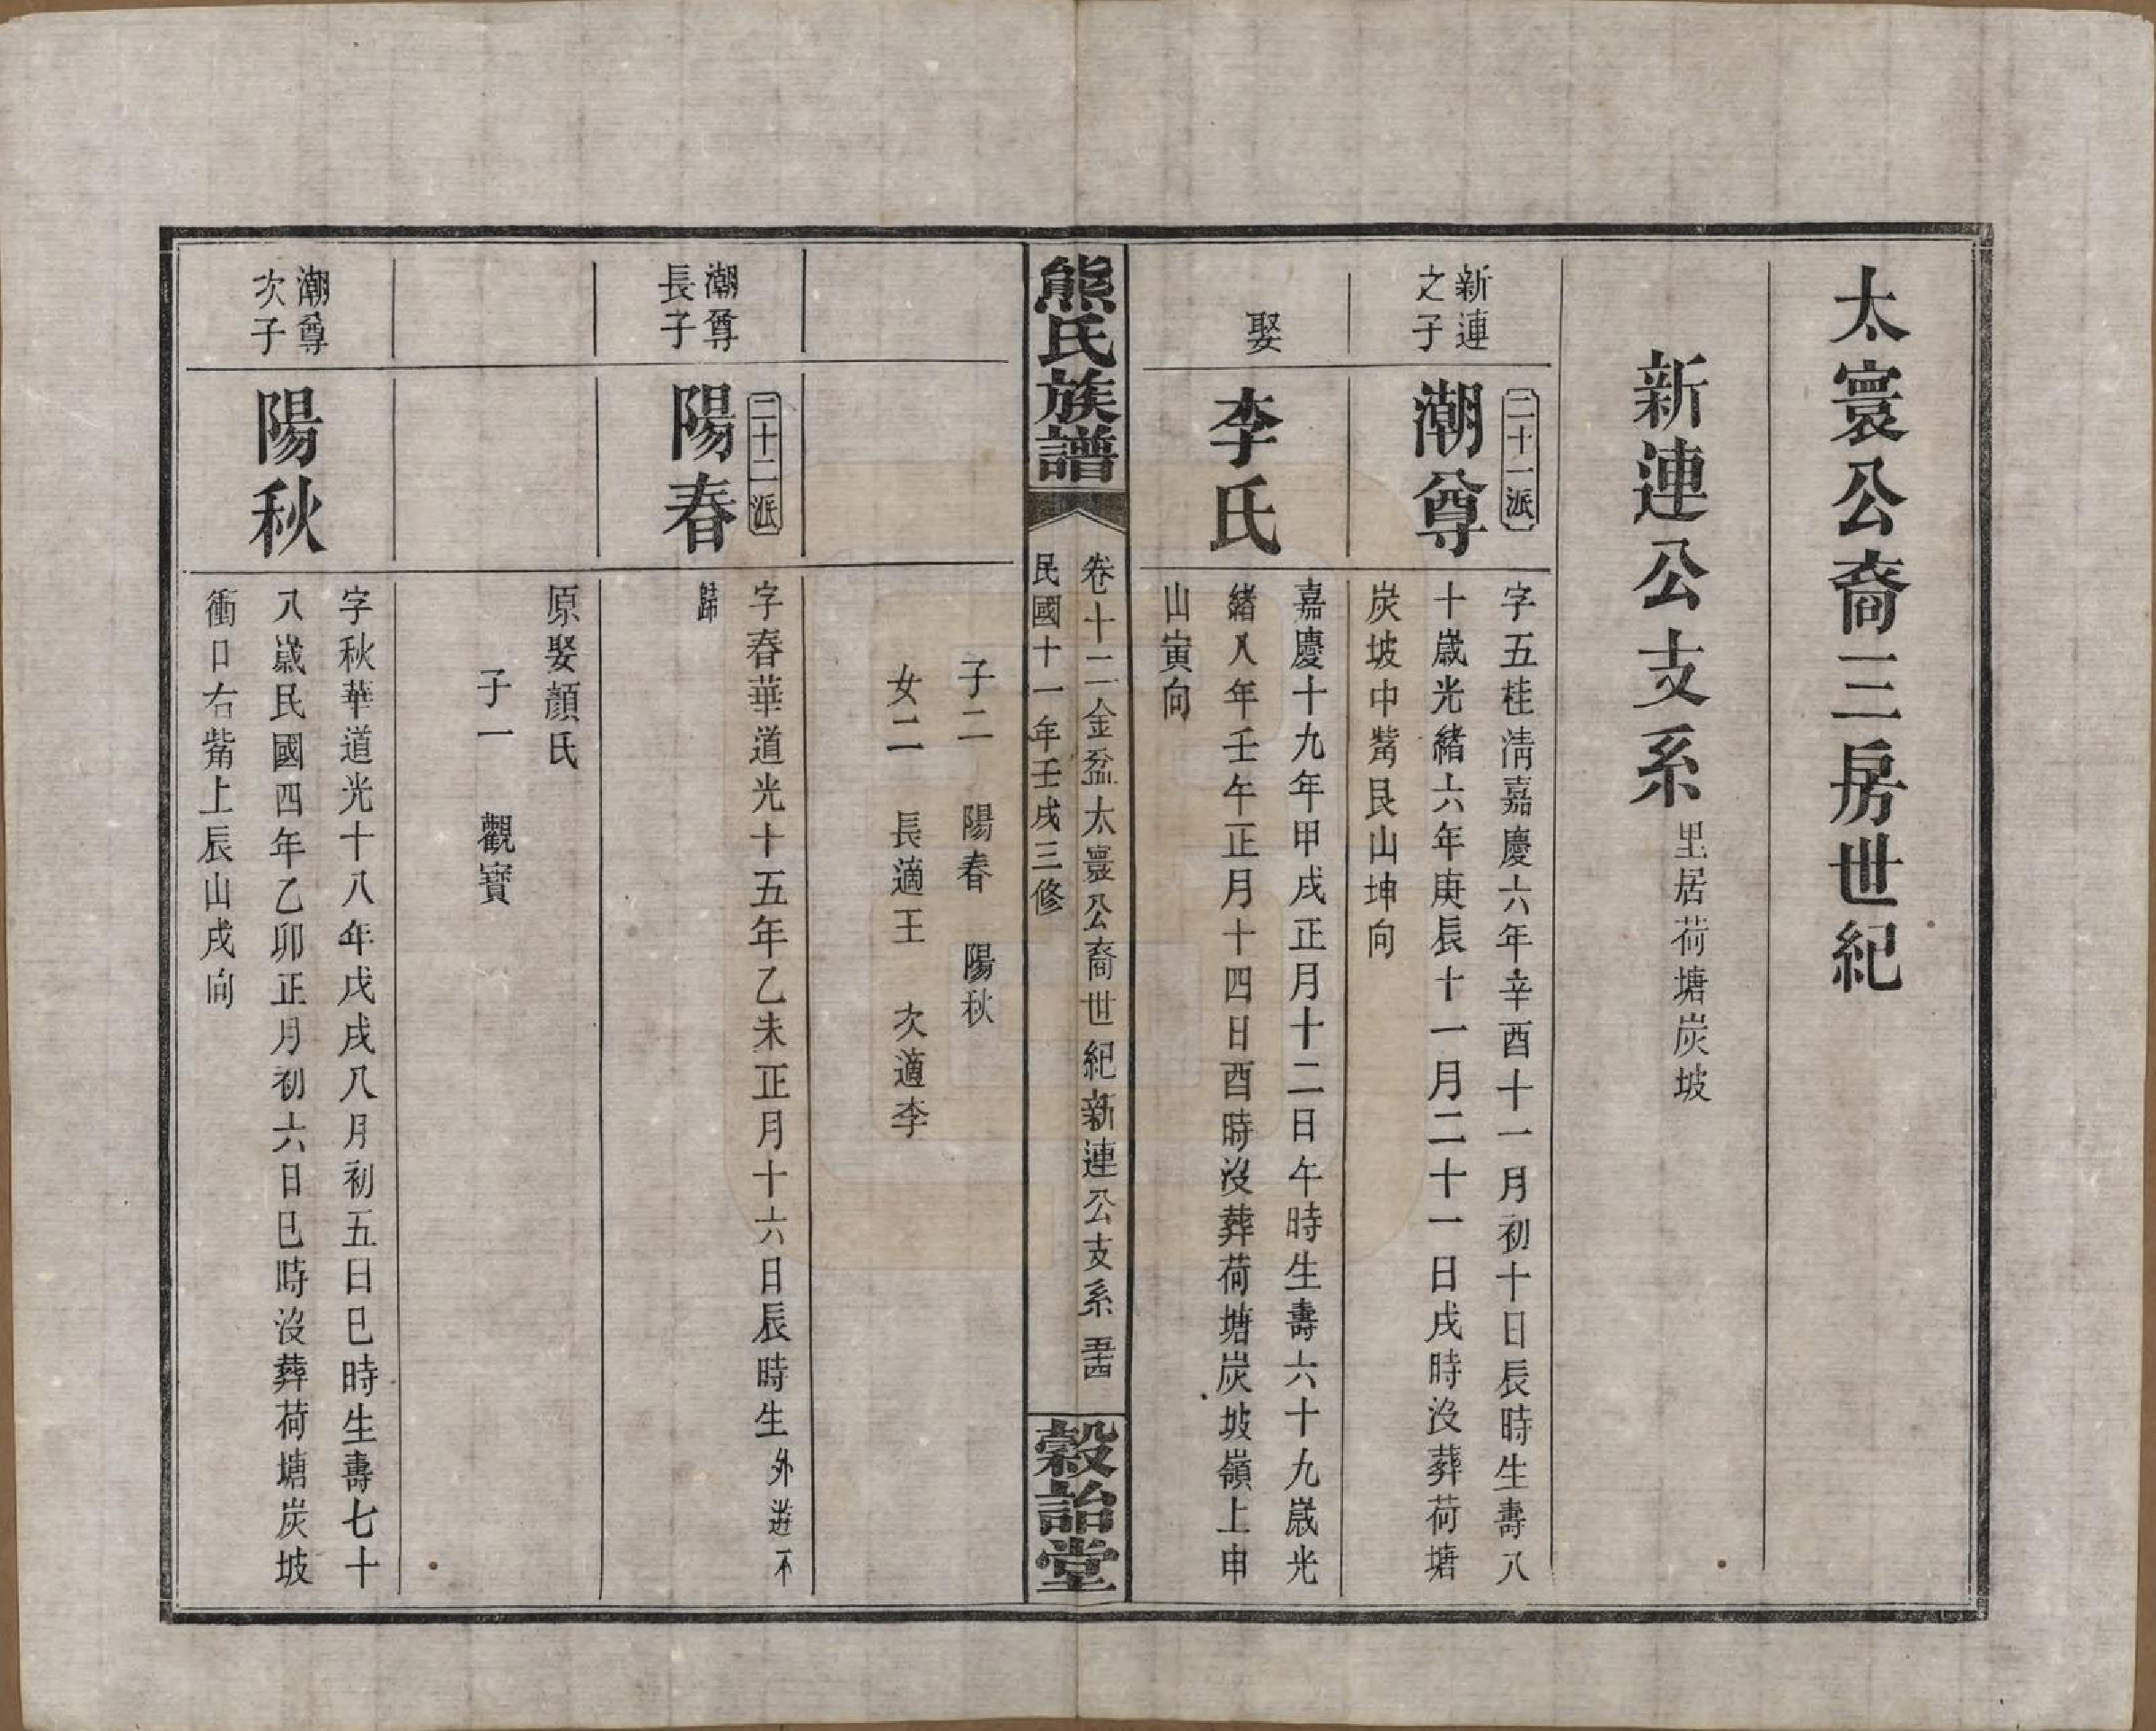 太寰公裔三房世紀
新連公支系
里居荷塘炭坡
新連
之子
二十一派
潮尊
字五桂清嘉慶六年辛酉十一月初十日辰時生壽八
十歲光緒六年庚辰十一月二十一日戌時沒葬荷塘
炭坡中嘴艮山坤向
娶
李氏
嘉慶十九年甲戌正月十二日午時生壽六十九歲光
緒八年壬午正月十四日酉時沒葬荷塘炭坡嶺上申
山寅向
熊氏族譜
卷十二金盆太寰公裔世紀新連公支系 五十四
民國十一年壬戌三修
穀詒堂
子二 陽春 陽秋
女二 長適王 次適李
潮尊
長子
二十二派
陽春
字春華道光十五年乙未正月十六日辰時生外遊不
歸
原娶顏氏
子一 觀寶
潮尊
次子
陽秋
字秋華道光十八年戊戌八月初五日巳時生壽七十
八歲民國四年乙卯正月初六日巳時沒葬荷塘炭坡
衝口右嘴上辰山戌向